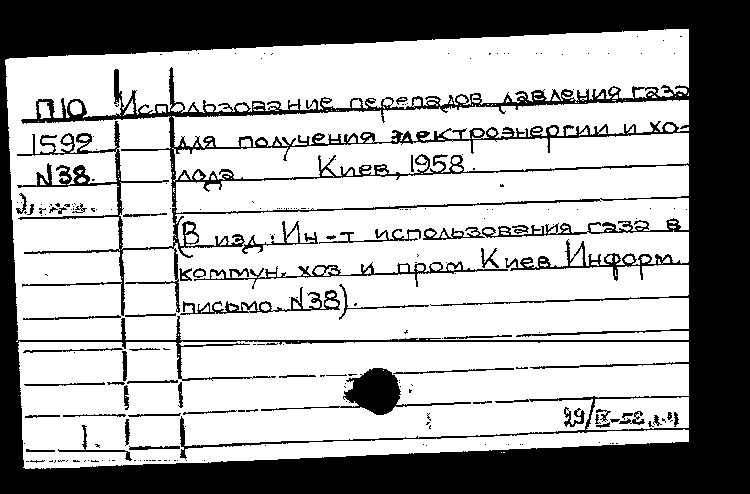 П10 Использование перепадов давления газа
1592 для получения электроэнергии и хо-
N38. лода. Киев, 1958.
(В изд.: Ин-т использования газа в
коммун. хоз и пром. Киев. Информ.
письмо. N38).
29/IX-58
1.